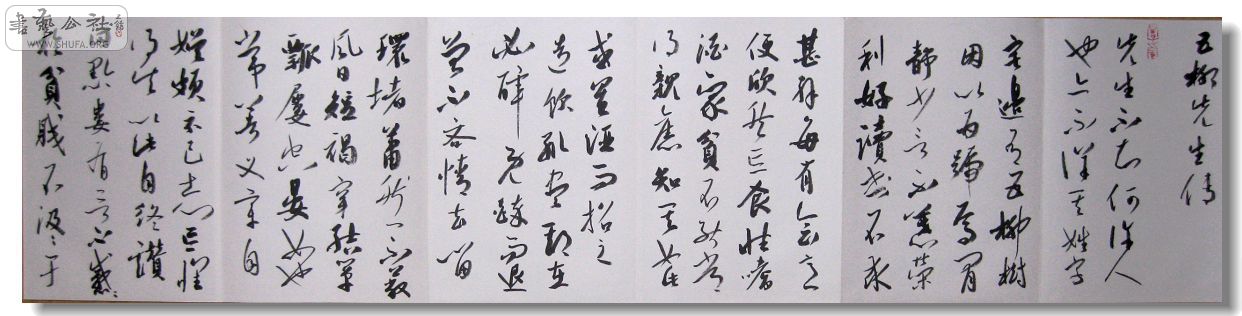 五柳先生傳
先生不知何許人
也亦不詳其姓字
宅邊有五柳樹
因以為號焉閒
靜少言不慕榮
利好讀書不求
甚解每有會意
便欣然忘食性嗜
酒家貧不能常
得親舊知其如此
或置酒而招之
造飲輒盡期在
必醉既醉而退
曾不吝情去留
環堵蕭然不蔽
風日短褐穿結簞
瓢屢空晏如也
常著文章自
娛頗示己志忘懷
得失以此自終贊
曰黔婁有言不戚戚
於貧賤不汲汲于
書藝公社
WWW.SHUFA.ORG